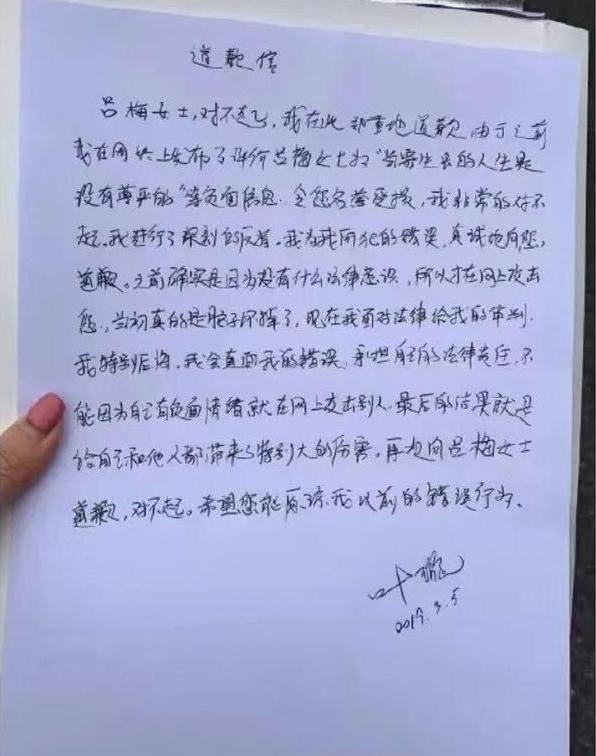 道歉信
吕梅女士,对不起,我在此郑重地道歉 由于之前
我在网络上发布了评价吕梅女士如"当寄生虫的人生是
没有尊严的"等负面信息.令您名誉受损,我非常的对不
起.我进行了深刻的反省。我为我所犯的错误,真诚地向您,
道歉。之前确实是因为没有什么法律意识,所以才在网上攻击
您,当初真的是脑子坏掉了,现在我面对法律给我的审判.
我特别后悔.我会直面我的错误,承担自己的法律责任.不
能因为自己有负面情绪就在网上攻击别人.最后的结果就是
给自己和他人都带来了特别大的厉害,再次向吕梅女士
道歉,对不起。希望您能原谅我以前的错误行为.
叶璇
2019.3.5